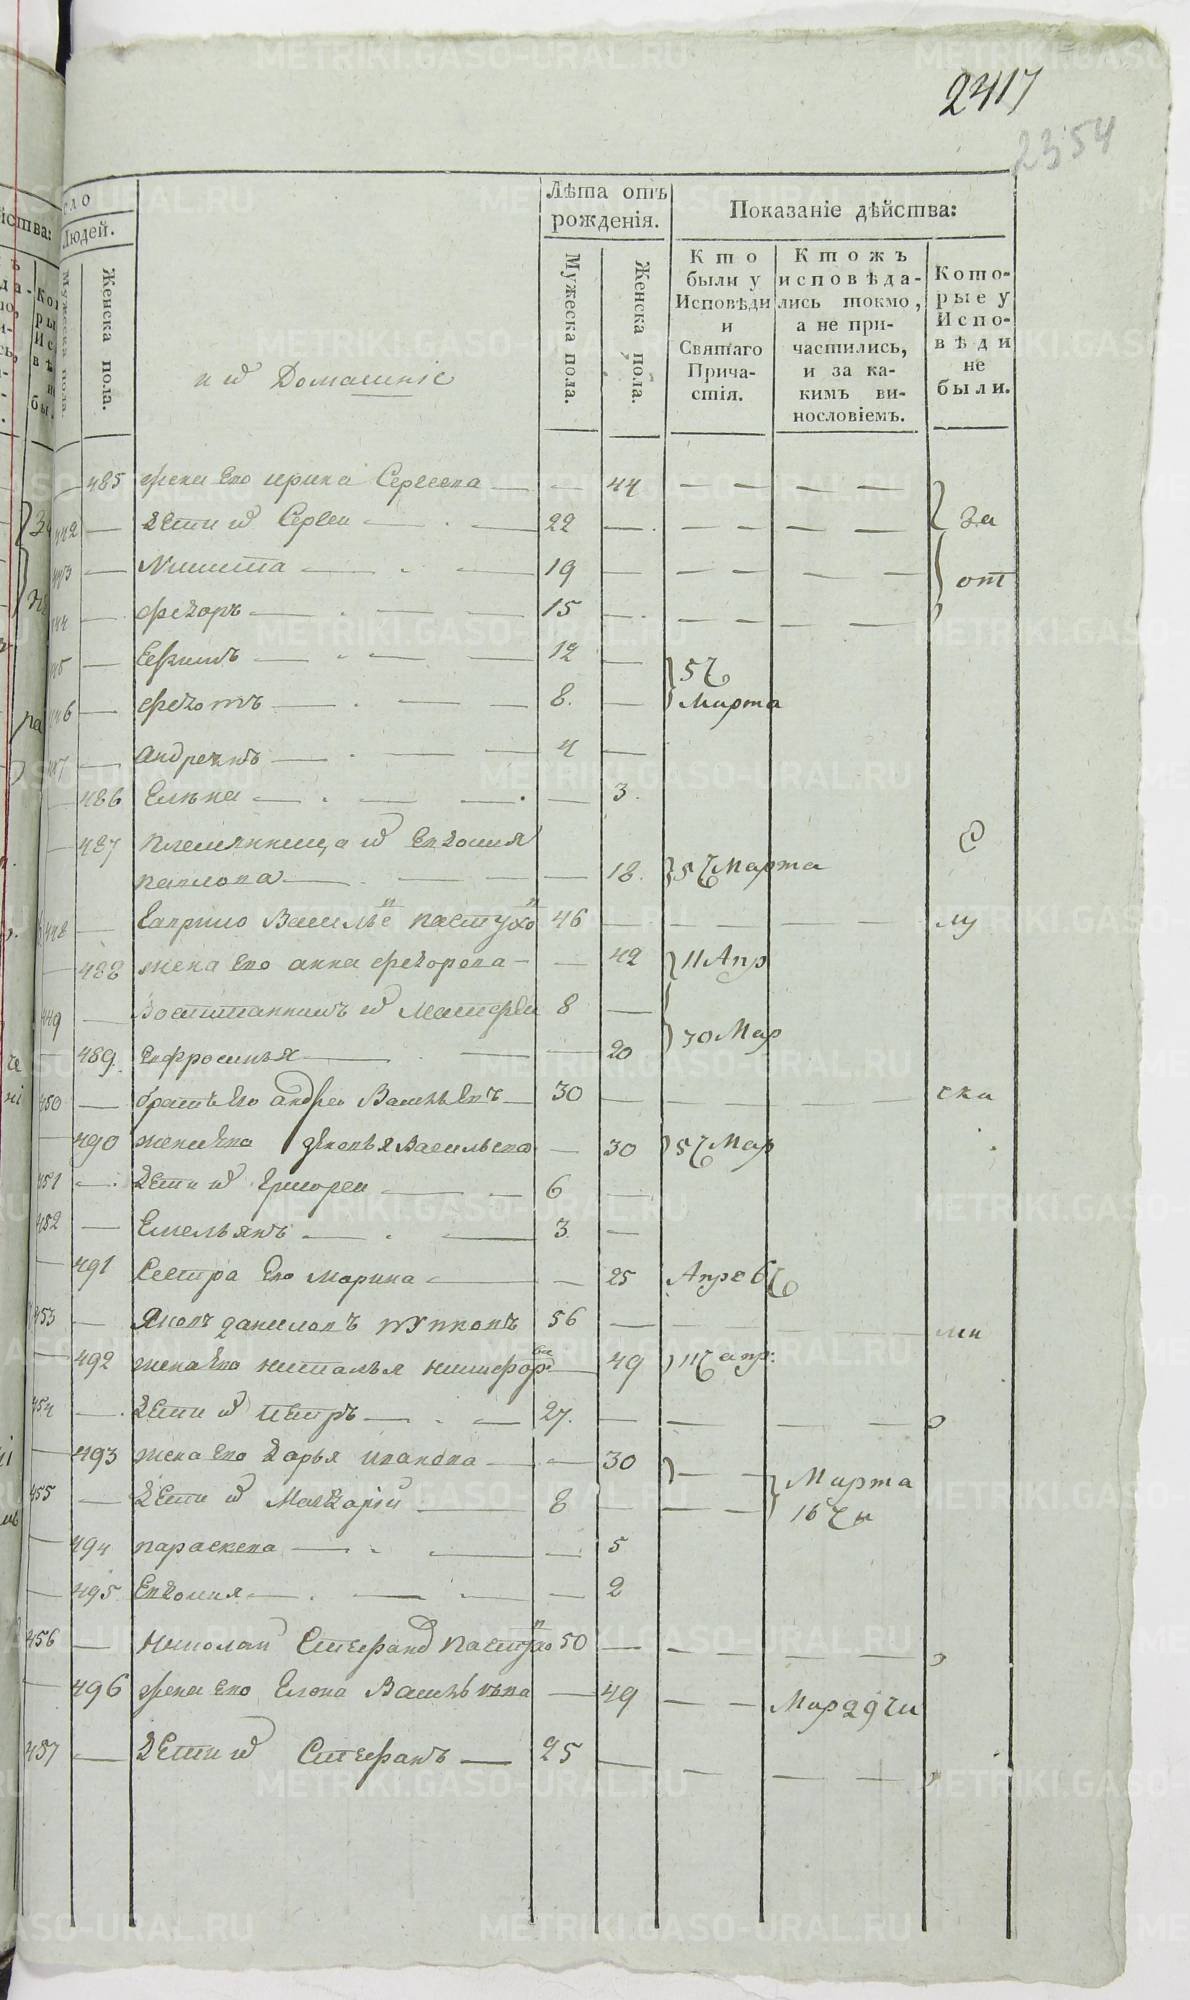 2417
2354
сло
Людей.
Мужеска пола.
Женска пола.
Лѣта отъ рожденія.
Показаніе дѣйства:
Мужеска пола.
Женска пола.
Кто были у Исповѣди и Святаго Причастія.
Ктожъ исповѣдались токмо, а не причастились, и за какимъ винословіемъ.
Которые у Исповѣди не были.
и ихъ Домашніе
485 жена его ирина Сергеева 44
442 Дети их Сергеи 22 за
443 Никита 19 от
444 федоръ 15
445 Ефимъ 12 5 ч
446 федотъ 8. Марта
447 андреянъ 4
486 Елена 3.
487 племянница их Евдокия
павлова 18. 5 ч Марта
448 Гаврило Василье пастухо 46 лу
488 жена его анна федорова 42 11 Апр
449 Воспитанникъ их Матфеи 8
489. Ефросинья 20 30 Мар
450 братъ его андреи Васильевъ 30 ски
490 жена его Васильева 30 5 ч Мар
451 Дети их Григореи 6
452 Емельянъ 3
491 Сестра его марина 25 Апре 6 ч
453 Яковъ даниловъ пупковъ 56 ми
492 жена его наталья никифор 49 11 ч апр:
454 Дети их петръ 27.
493 жена его дарья иванова 30 Марта
455 Дети их Макарiй 8 16 ч
494 параскева 5
495 Евдокия 2
456 николаи Стефано пастухо 50
496 жена его Елена Васильева 49 Мар 29 чи
457 Дети их Стефанъ 25
METRIKI.GASO-URAL.RU